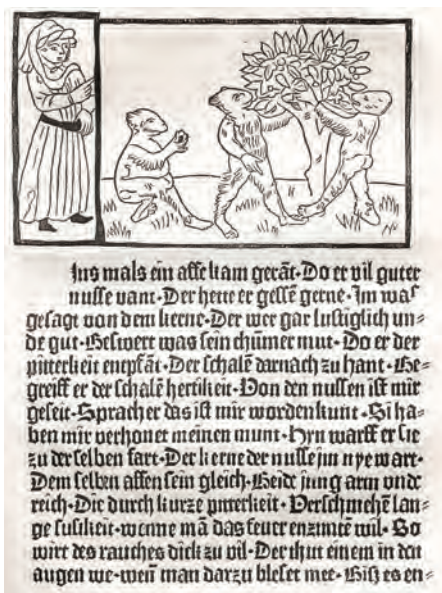 Jns mals ein affe kam gerāt·Do er vil guter
nusse vant·Der hette er gessē gerne·Jm was
gesagt von dem kerne·Der wer gar lustiglich un⸗
de gut·Beswert was sein chūmer mut·Do er der
pitterkeit entpfāt·Der schalē darnach zu hant·Be⸗
greiff er der schalē hertikeit·Von den nussen ist mir
geseit·Sprach er das ist mir worden kunt·Si ha⸗
ben mir verhonet meinen munt·Hyn warff er sie
zu der selben fart·Der kerne der nusse im nye wart·
Dem selben affen sein gleich·Beide jung arm vnde
reich·Die durch kurze pitterkeit·Verschmehē lan⸗
ge susikeit·wenne mā das feuer enzuntē wil·So
wirt des rauches dick zu vil·Der thut einem in den
augen we·wen̄ man darzu bleset mee·Biß es en⸗